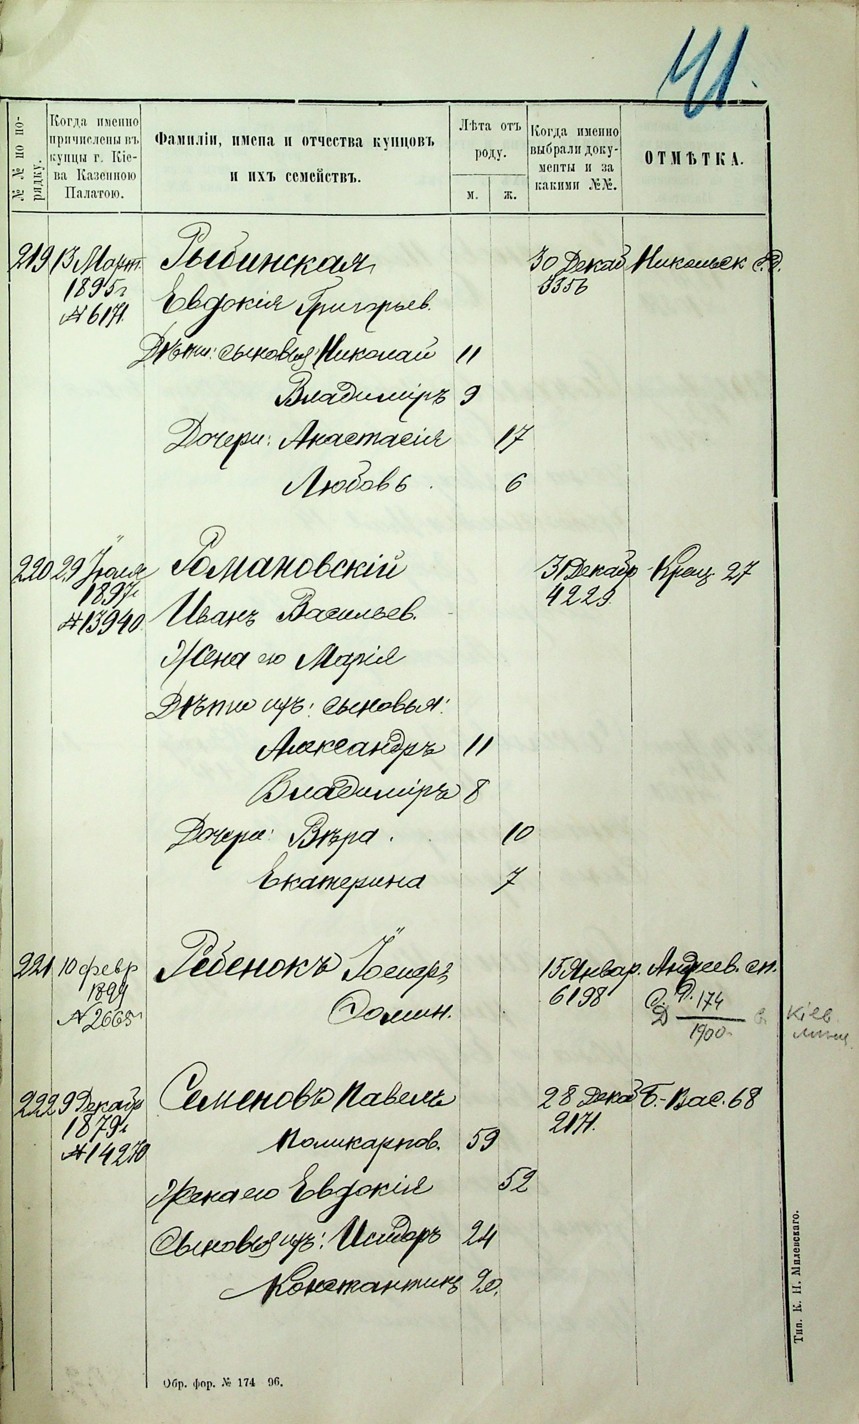 41.
№№ по по-
рядку.
Когда именно
причислены въ
купцы г. Кіе-
ва Казенною
Палатою.
Фамиліи, имена и отчества купцовъ
и ихъ семействъ.
Лѣта отъ
роду.
м.
ж.
Когда именно
выбрали доку-
менты и за
какими №№.
ОТМѢТКА.
219 13 Март. Рыбинская 30 Декаб Никольск
1895 г. 3356
№ 6171. Евдокія Григорьев.
Дѣти: сыновья: Николай 11
Владиміръ 9
Дочери: Анастасія 17
Любовь 6
220 29 Іюля Романовскій 31 Декабр Крещ. 27
1897 г. 4229.
№ 13940. Иванъ Васильев.
Жена его Марія
Дѣти ихъ: сыновья:
Александръ 11
Владиміръ 8
Дочери: Вѣра. 10
Екатерина 7
221 10 февр Ребенокъ Іосифъ 15 Январ. Андреев. сп.
1899 6198
№ 2665 Фомин. 174
Д
1900
Кіев.
222 9 Декабр Семеновъ Павелъ 28 Декаб Б.-Вас. 68
1879 г. 2171.
№ 14270 Поликарпов. 59
Жена его Евдокія 52
Сыновья ихъ: Исидоръ 24
Константинъ 20.
Обр. фор. № 174 96.
Тип. К. Н. Милевскаго.